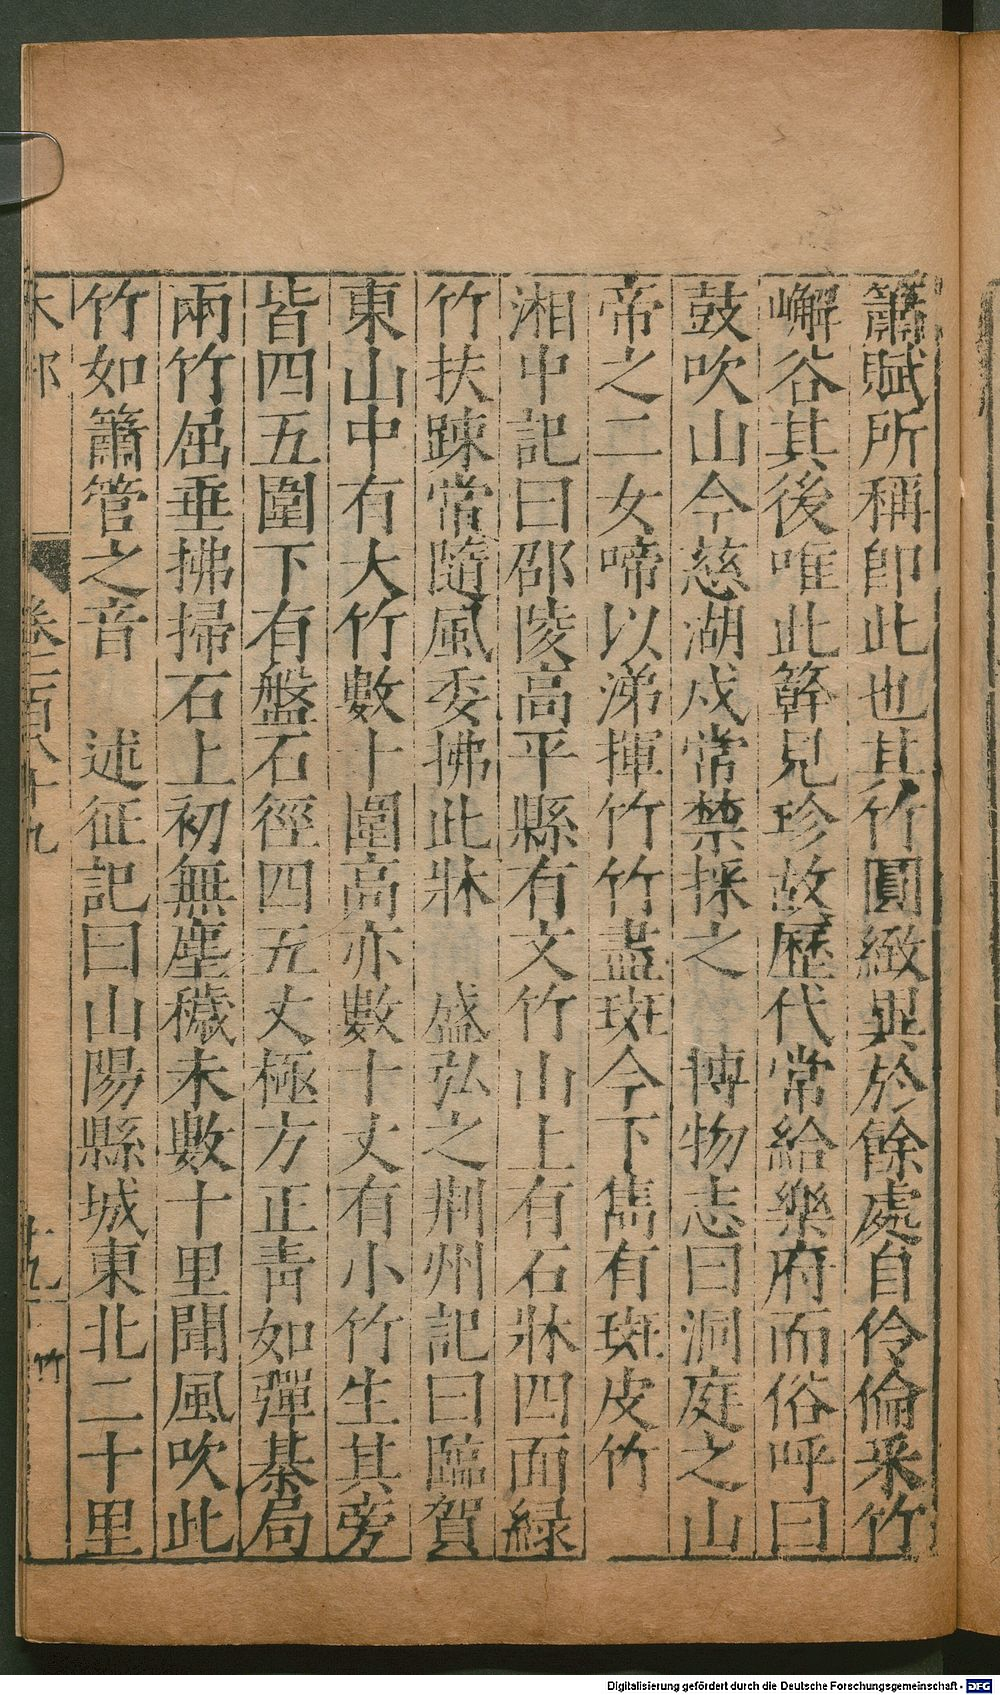 簫賦所稱卽此也其竹圓緻異於餘處自伶倫采竹
嶰谷其後唯此簳見珍故歷代常給樂府而俗呼曰
鼓吹山今慈湖戍常禁採之　博物志曰洞庭之山
帝之二女啼以涕揮竹竹盡斑今下雋有斑皮竹
湘中記曰邵陵高平縣有文竹山上有石牀四面緑
竹扶踈常隨風委拂此牀　盛弘之荆州記曰臨賀
東山中有大竹數十圍高亦數十丈有小竹生其旁
皆四五圍下有盤石徑四五丈極方正靑如彈棊局
兩竹屈垂拂掃石上初無塵穢未數十里聞風吹此
竹如簫管之音　述征記曰山陽縣城東北二十里
木部　卷三百八十九　十九　竹
Digitalisierung gefördert durch die Deutsche Forschungsgemeinschaft - DFG